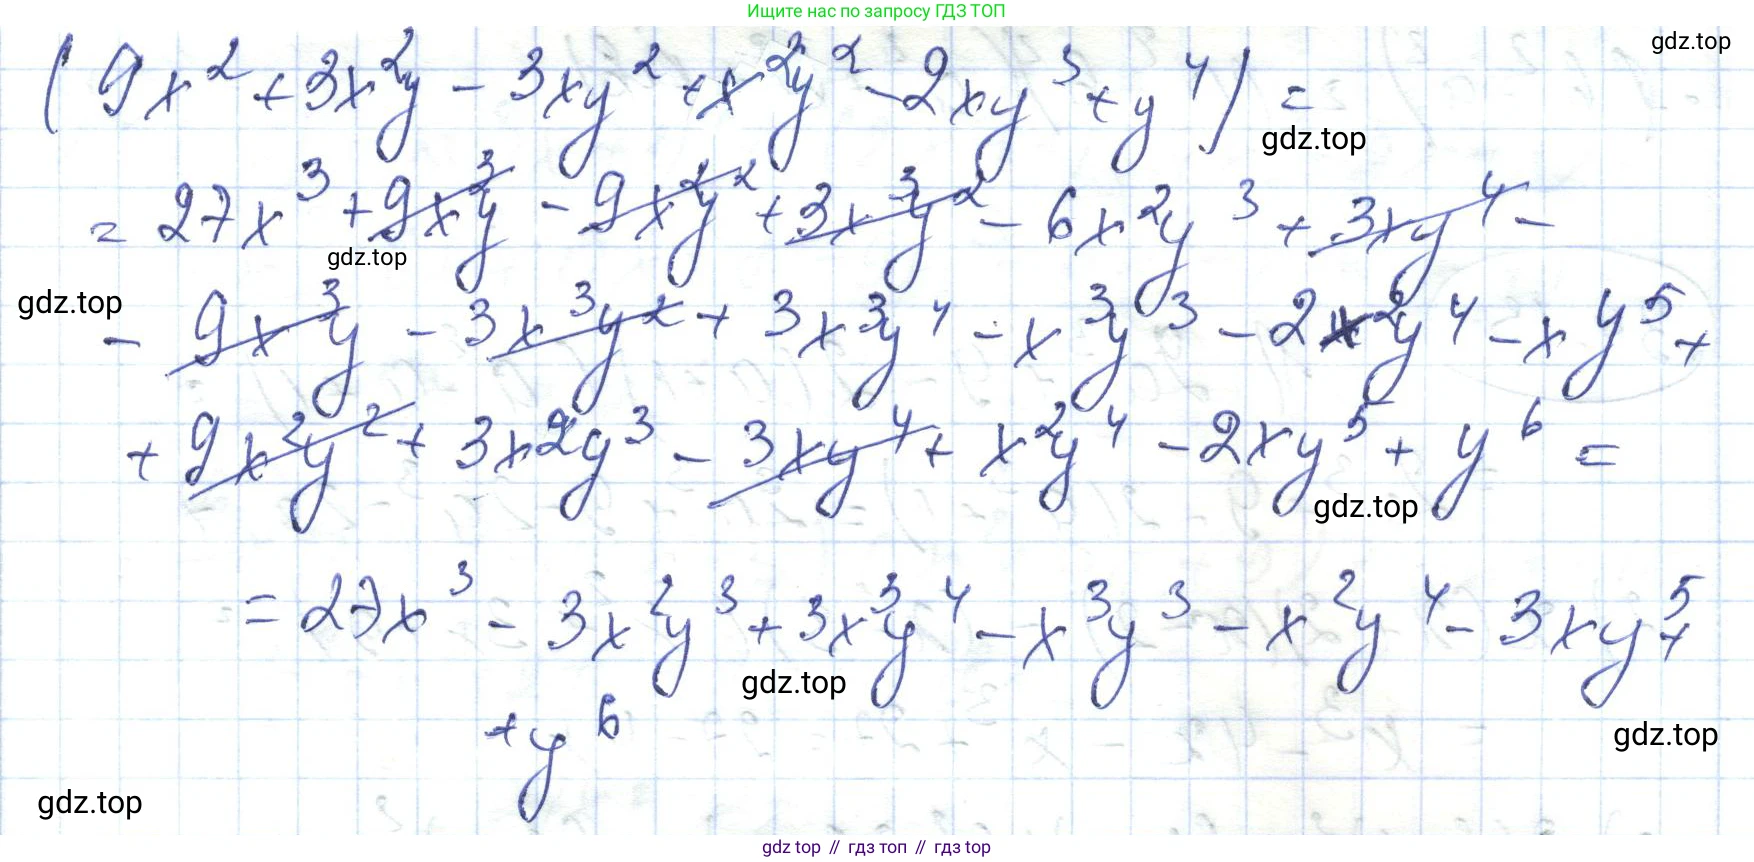 Ищите нас по запросу ГДЗ ТОП
gdz.top
(9x²+3x²y-3xy²+x²y²-2xy³+y⁴)=
gdz.top
=27x³+9x³y-9x²y²+3x³y²-6x²y³+3xy⁴-
gdz.top
gdz.top
-9x³y-3x³y²+3x³y⁴-x³y³-2x²y⁴-xy⁵+
+9x²y²+3x²y³-3xy⁴+x²y⁴-2xy⁵+y⁶=
gdz.top
=27x³-3x²y³+3x³y⁴-x³y³-x²y⁴-3xy⁵+
gdz.top
+y⁶
gdz.top
gdz.top
gdz top // гдз топ // gdz top